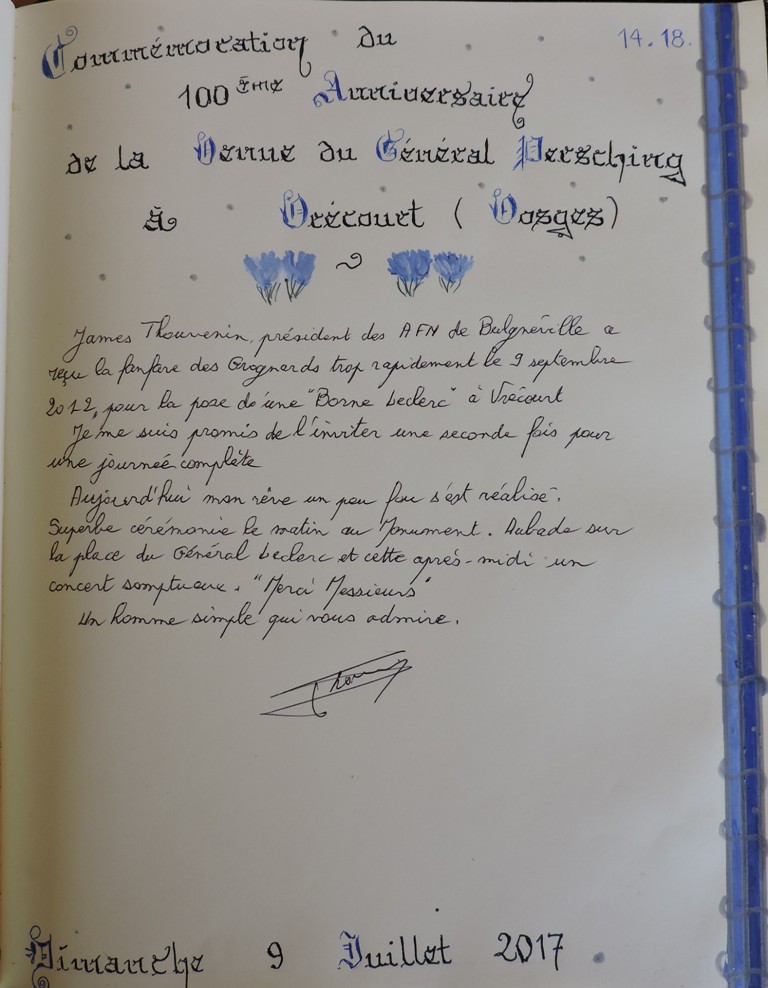 Commémoration du
14.18.
100ème Anniversaire
de la Venue du Général Persching
à Vrécourt (Vosges)
James Thouvenin, président des AFN de Bulgnéville a
reçu la fanfare des Grognards trop rapidement le 9 septembre
2012, pour la pose d'une "Borne Leclerc" à Vrécourt
Je me suis promis de l'inviter une seconde fois pour
une journée complète
Aujourd'hui mon rêve un peu fou s'est réalisé.
Superbe cérémonie le matin au Monument. Aubade sur
la place du Général Leclerc et cette après-midi un
concert somptueux. "Merci Messieurs"
Un homme simple qui vous admire.
Dimanche 9 Juillet 2017